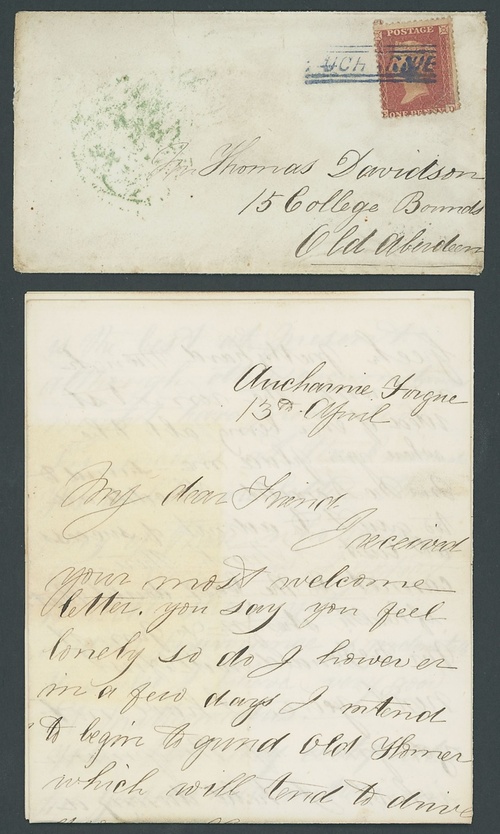 POSTAGE
ONE PENNY
Thomas Davidson
15 College Bounds
Old Aberdeen
Auchairnie, Forgue
13th April
My dear Friend
I received
your most welcome
letter. you say you feel
lonely so do I however
in a few days I intend
to begin to grind old Homer
which will tend to drive